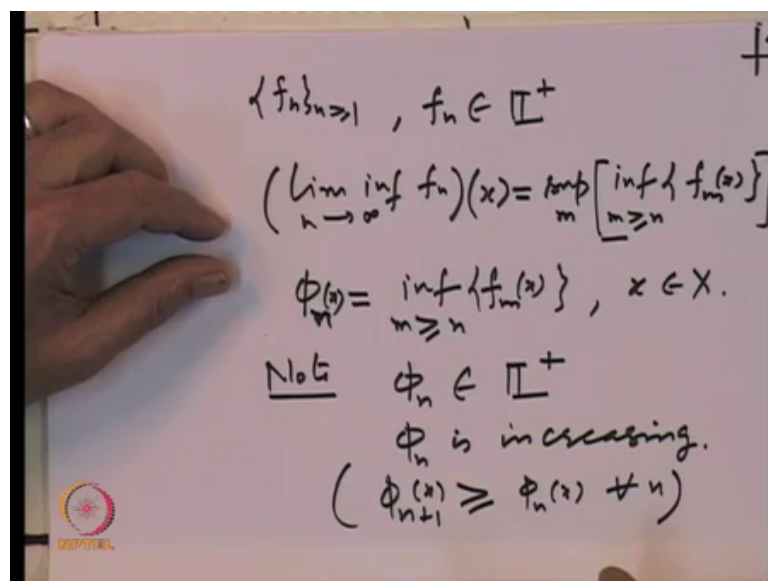 {fn}n≥1 , fn ∈ 𝕃⁺
(lim inf fn)(x) = sup [inf {fm(x)}]
n→∞ m m≥n
ϕn(x) = inf {fm(x)} , x ∈ X.
m≥n
Note ϕn ∈ 𝕃⁺
ϕn is increasing.
(ϕn+1(x) ≥ ϕn(x) ∀ n)
NPTEL